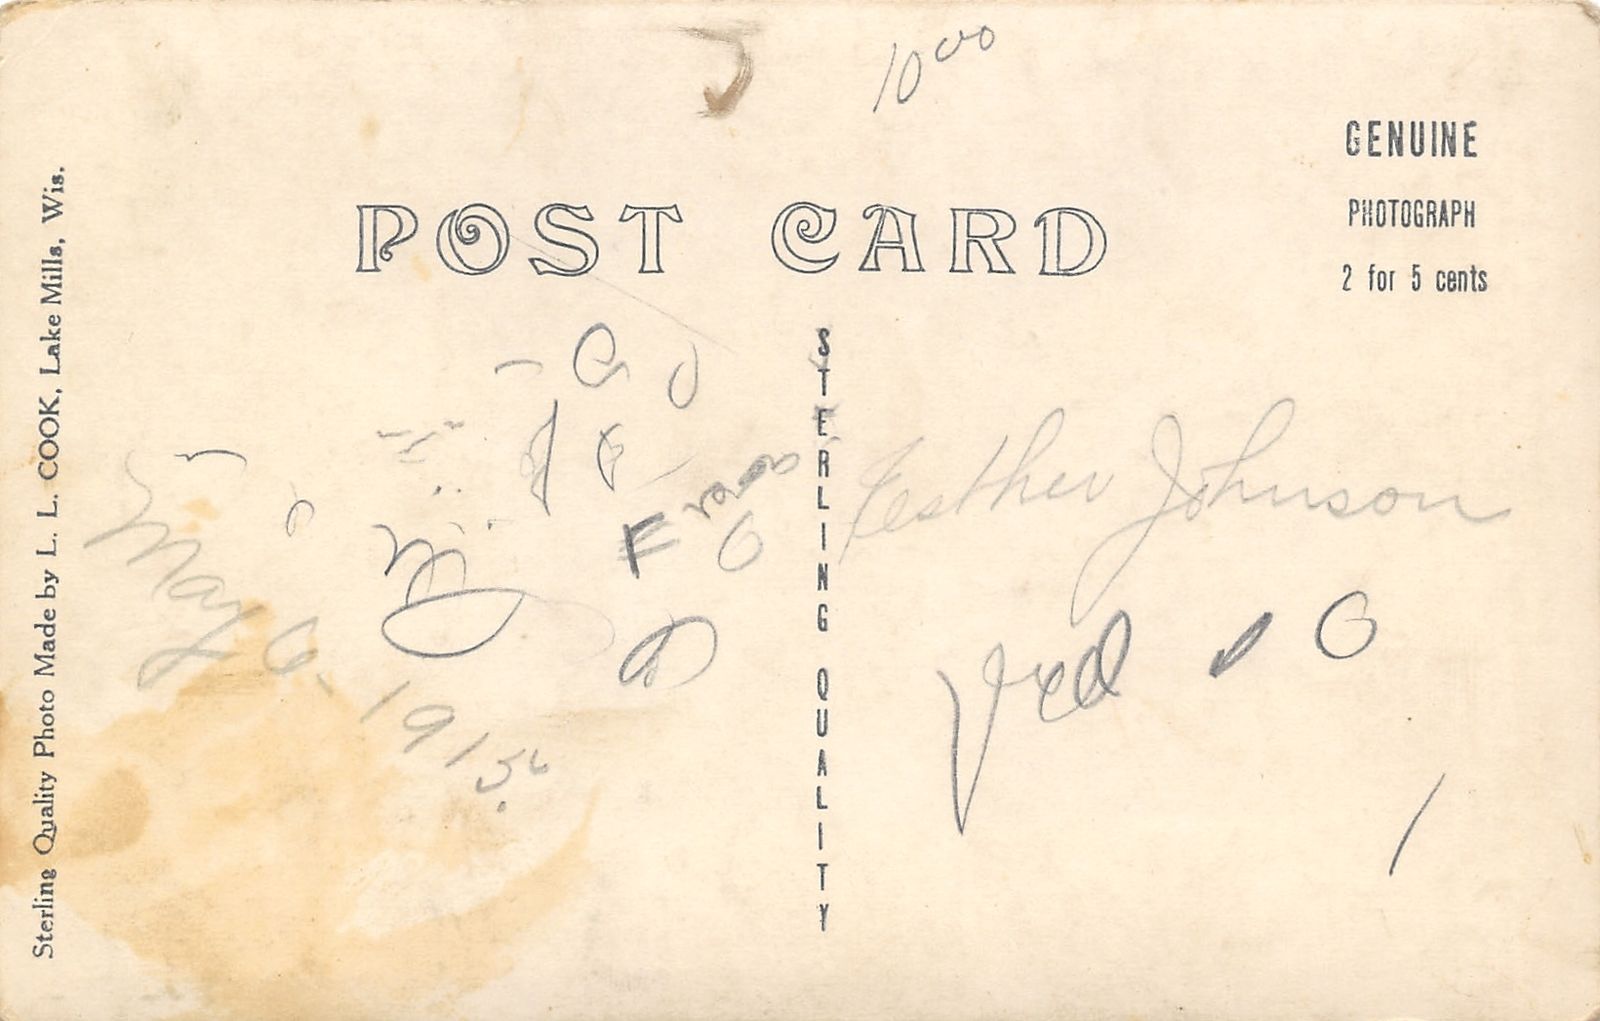 10 00
GENUINE
PHOTOGRAPH
2 for 5 cents
POST CARD
Sterling Quality Photo Made by L. L. COOK, Lake Mills, Wis.
STERLING QUALITY
Esther Johnson
May 6 - 1915